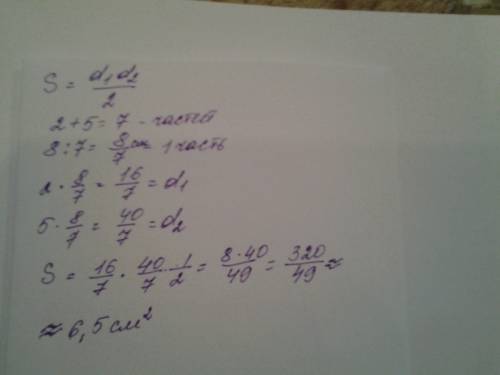 S = d₁d₂/2
2+5=7 - частей
8:7= 8/7 см 1 часть
2 · 8/7 = 16/7 = d₁
5 · 8/7 = 40/7 = d₂
S = 16/7 · 40/7 · 1/2 = 8·40/49 = 320/49 ≈
≈ 6,5 см²